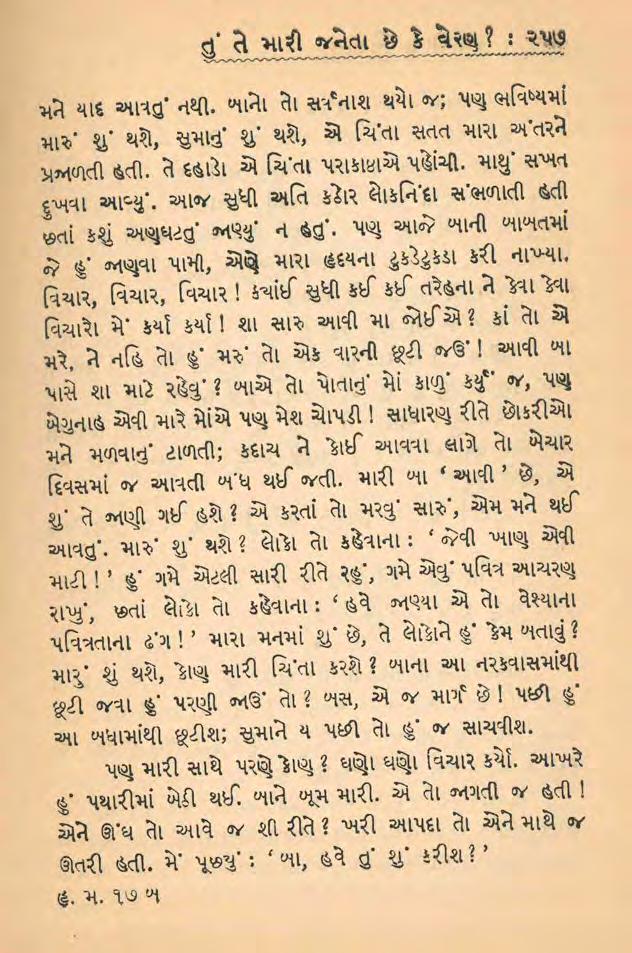 તું તે મારી જનેતા છે કે વેરણ? : ૨૫૭
મને યાદ આવતું નથી. બાનો તો સર્વનાશ થયો જ; પણ ભવિષ્યમાં
મારું શું થશે, સુમાનું શું થશે, એ ચિંતા સતત મારા અંતરને
પ્રજાળતી હતી. તે દહાડો એ ચિંતા પરાકાષ્ઠાએ પહોંચી. માથું સખત
દુખવા આવ્યું. આજ સુધી અતિ કઠોર લોકનિંદા સંભળાતી હતી
છતાં કશું અણઘટતું જાણ્યું ન હતું. પણ આજે બાની બાબતમાં
જે હું જાણવા પામી, એણે મારા હૃદયના ટુકડેટુકડા કરી નાખ્યા.
વિચાર, વિચાર, વિચાર! ક્યાંઈ સુધી કઈ કઈ તરેહના ને કેવા કેવા
વિચારો મેં કર્યા કર્યા! શા સારુ આવી મા જોઈએ? કાં તો એ
મરે, ને નહિ તો હું મરું તો એક વારની છૂટી જઉં! આવી બા
પાસે શા માટે રહેવું? બાએ તો પોતાનું મોં કાળું કર્યું જ, પણ
બેગુનાહ એવી મારે મોંએ પણ મેશ ચોપડી! સાધારણ રીતે છોકરીઓ
મને મળવાનું ટાળતી; કદાચ ને કોઈ આવવા લાગે તો બેચાર
દિવસમાં જ આવતી બંધ થઈ જતી. મારી બા ‘ આવી ’ છે, એ
શું તે જાણી ગઈ હશે? એ કરતાં તો મરવું સારું, એમ મને થઈ
આવતું. મારું શું થશે? લોકો તો કહેવાના : ‘જેવી ખાણ એવી
માટી!’ હું ગમે એટલી સારી રીતે રહું, ગમે એવું પવિત્ર આચરણ
રાખું, છતાં લોકો તો કહેવાના : ‘હવે જાણ્યા એ તો વેશ્યાના
પવિત્રતાના ઢંગ!’ મારા મનમાં શું છે, તે લોકોને હું કેમ બતાવું?
મારું શું થશે, કોણ મારી ચિંતા કરશે? બાના આ નરકવાસમાંથી
છૂટી જવા હું પરણી જાઉં તો? બસ, એ જ માર્ગ છે! પછી હું
આ બધામાંથી છૂટીશ; સુમાને ય પછી તો હું જ સાચવીશ.
પણ મારી સાથે પરણે કોણ? ઘણો ઘણો વિચાર કર્યો. આખરે
હું પથારીમાં બેઠી થઈ. બાને બૂમ મારી. એ તો જાગતી જ હતી!
એને ઊંઘ તો આવે જ શી રીતે? ખરી આપદા તો એને માથે જ
ઊતરી હતી. મેં પૂછ્યું : ‘બા, હવે તું શું કરીશ?’
હ. મ. ૧૭ બ